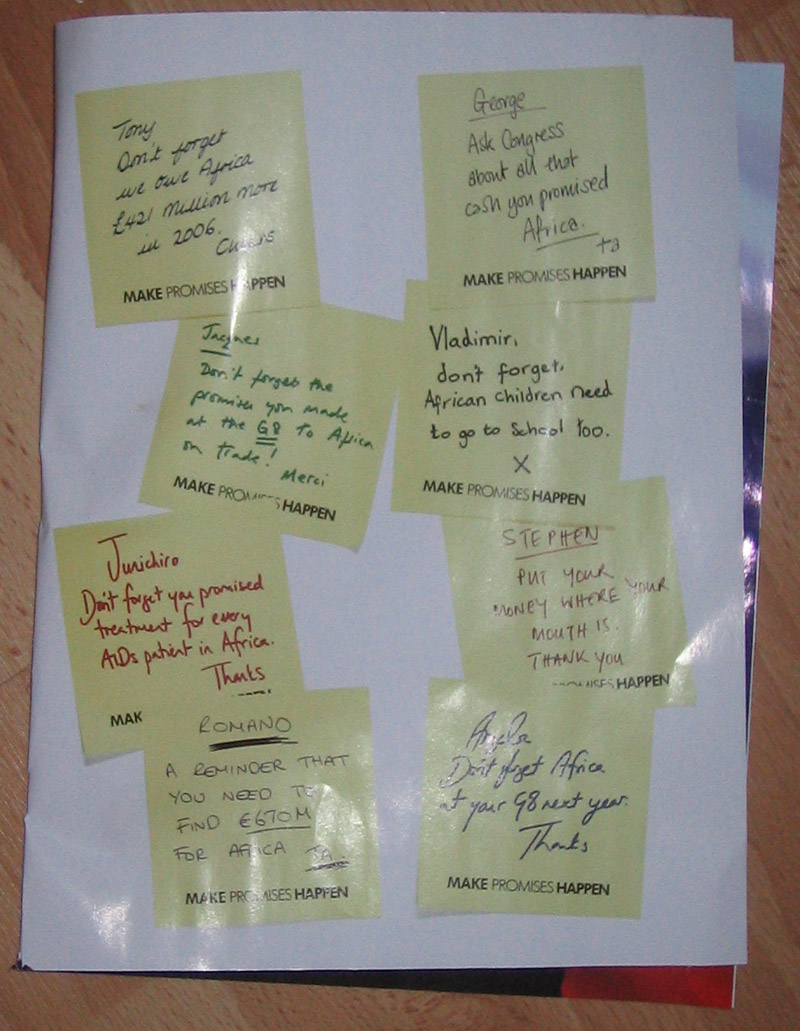 Tony
Don't forget
we owe Africa
£421 Million more
in 2006.
Cheers
MAKE PROMISES HAPPEN
George
Ask Congress
about all that
cash you promised
Africa.
ta
MAKE PROMISES HAPPEN
Jacques
Don't forget the
promises you made
at the G8 to Africa
on trade!
Merci
MAKE PROMISES HAPPEN
Vladimir,
don't forget,
African children need
to go to school too.
X
MAKE PROMISES HAPPEN
Junichiro
Don't forget you promised
treatment for every
AIDs patient in Africa.
Thanks
MAK
STEPHEN
PUT YOUR
MONEY WHERE YOUR
MOUTH IS.
THANK YOU
PROMISES HAPPEN
ROMANO
A REMINDER THAT
YOU NEED TO
FIND €670M
FOR AFRICA TA.
MAKE PROMISES HAPPEN
Angela
Don't forget Africa
at your G8 next year.
Thanks
MAKE PROMISES HAPPEN